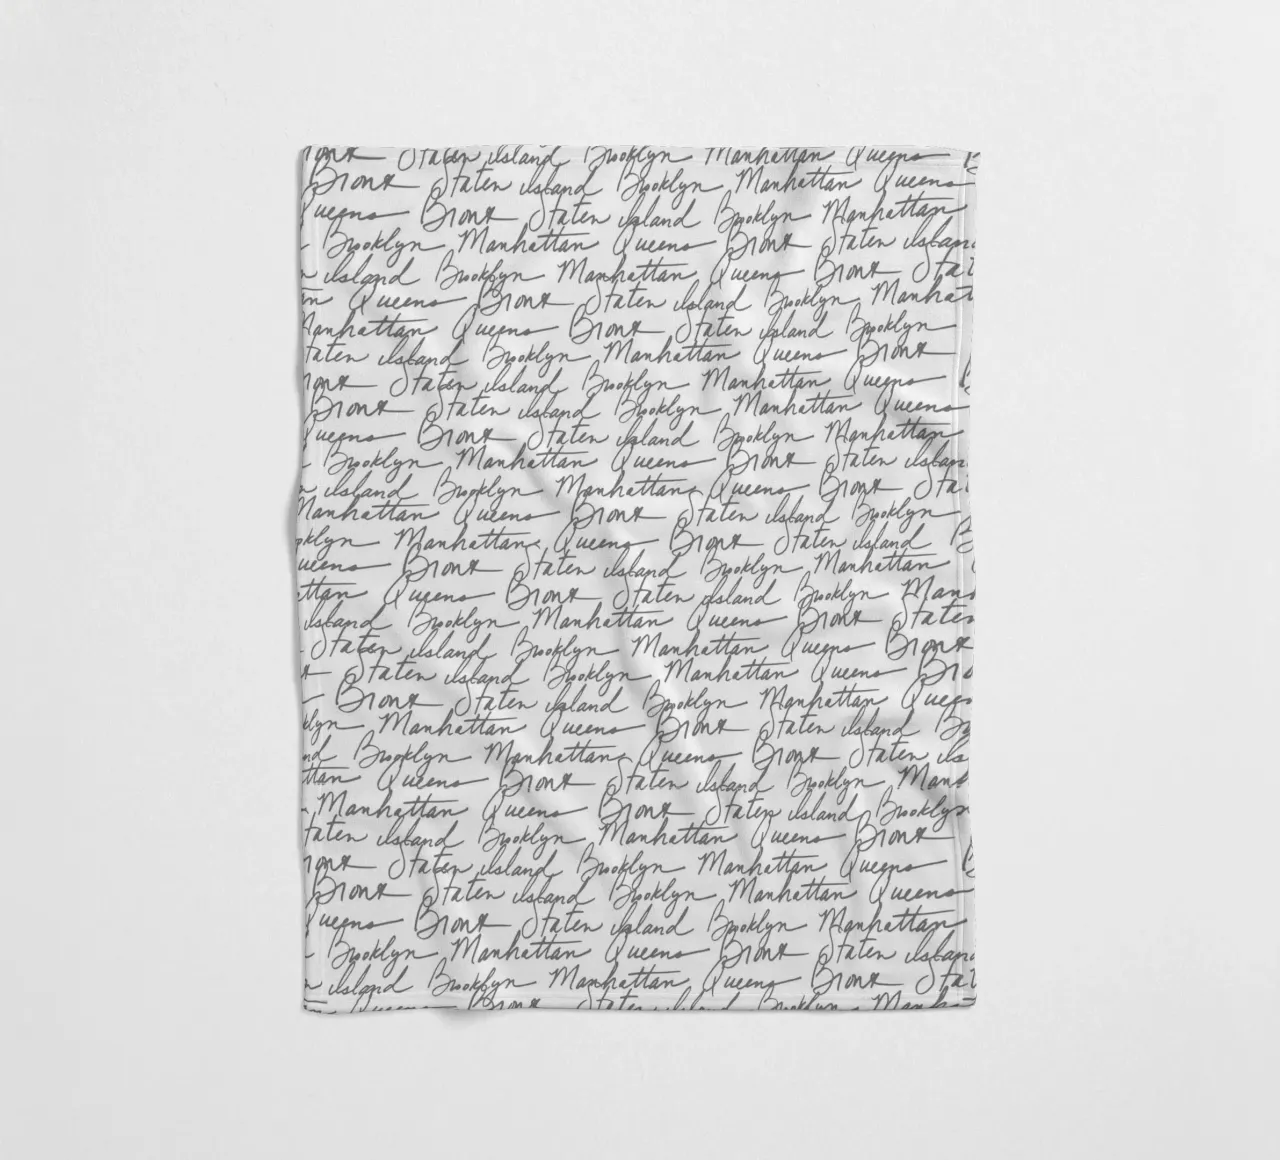 ronx Staten Island Brooklyn Manhattan Queens
Bronx Staten Island Brooklyn Manhattan Queens
Queens Bronx Staten Island Brooklyn Manhattan
Brooklyn Manhattan Queens Bronx Staten Islan
Island Brooklyn Manhattan Queens Bronx Stat
n Queens Bronx Staten Island Brooklyn Manhat
Manhattan Queens Bronx Staten Island Brooklyn
taten Island Brooklyn Manhattan Queens Bronx
ronx Staten Island Brooklyn Manhattan Queens
Bronx Staten Island Brooklyn Manhattan Queens
Queens Bronx Staten Island Brooklyn Manhattan
Brooklyn Manhattan Queens Bronx Staten Islan
Island Brooklyn Manhattan Queens Bronx Sta
Manhattan Queens Bronx Staten Island Brooklyn
klyn Manhattan Queens Bronx Staten Island B
ueens Bronx Staten Island Brooklyn Manhattan
ttan Queens Bronx Staten Island Brooklyn Man
Island Brooklyn Manhattan Queens Bronx Staten
Staten Island Brooklyn Manhattan Queens Bronx
x Staten Island Brooklyn Manhattan Queens Bro
Bronx Staten Island Brooklyn Manhattan Quee
klyn Manhattan Queens Bronx Staten Island Br
nd Brooklyn Manhattan Queens Bronx Staten Is
ttan Queens Bronx Staten Island Brooklyn Manh
Manhattan Queens Bronx Staten Island Brooklyn
taten Island Brooklyn Manhattan Queens Bronx
ronx Staten Island Brooklyn Manhattan Queens
Bronx Staten Island Brooklyn Manhattan Queens
Queens Bronx Staten Island Brooklyn Manhattan
Brooklyn Manhattan Queens Bronx Staten Islan
Island Brooklyn Manhattan Queens Bronx Stat
Queens Bronx Staten Island Brooklyn Manha